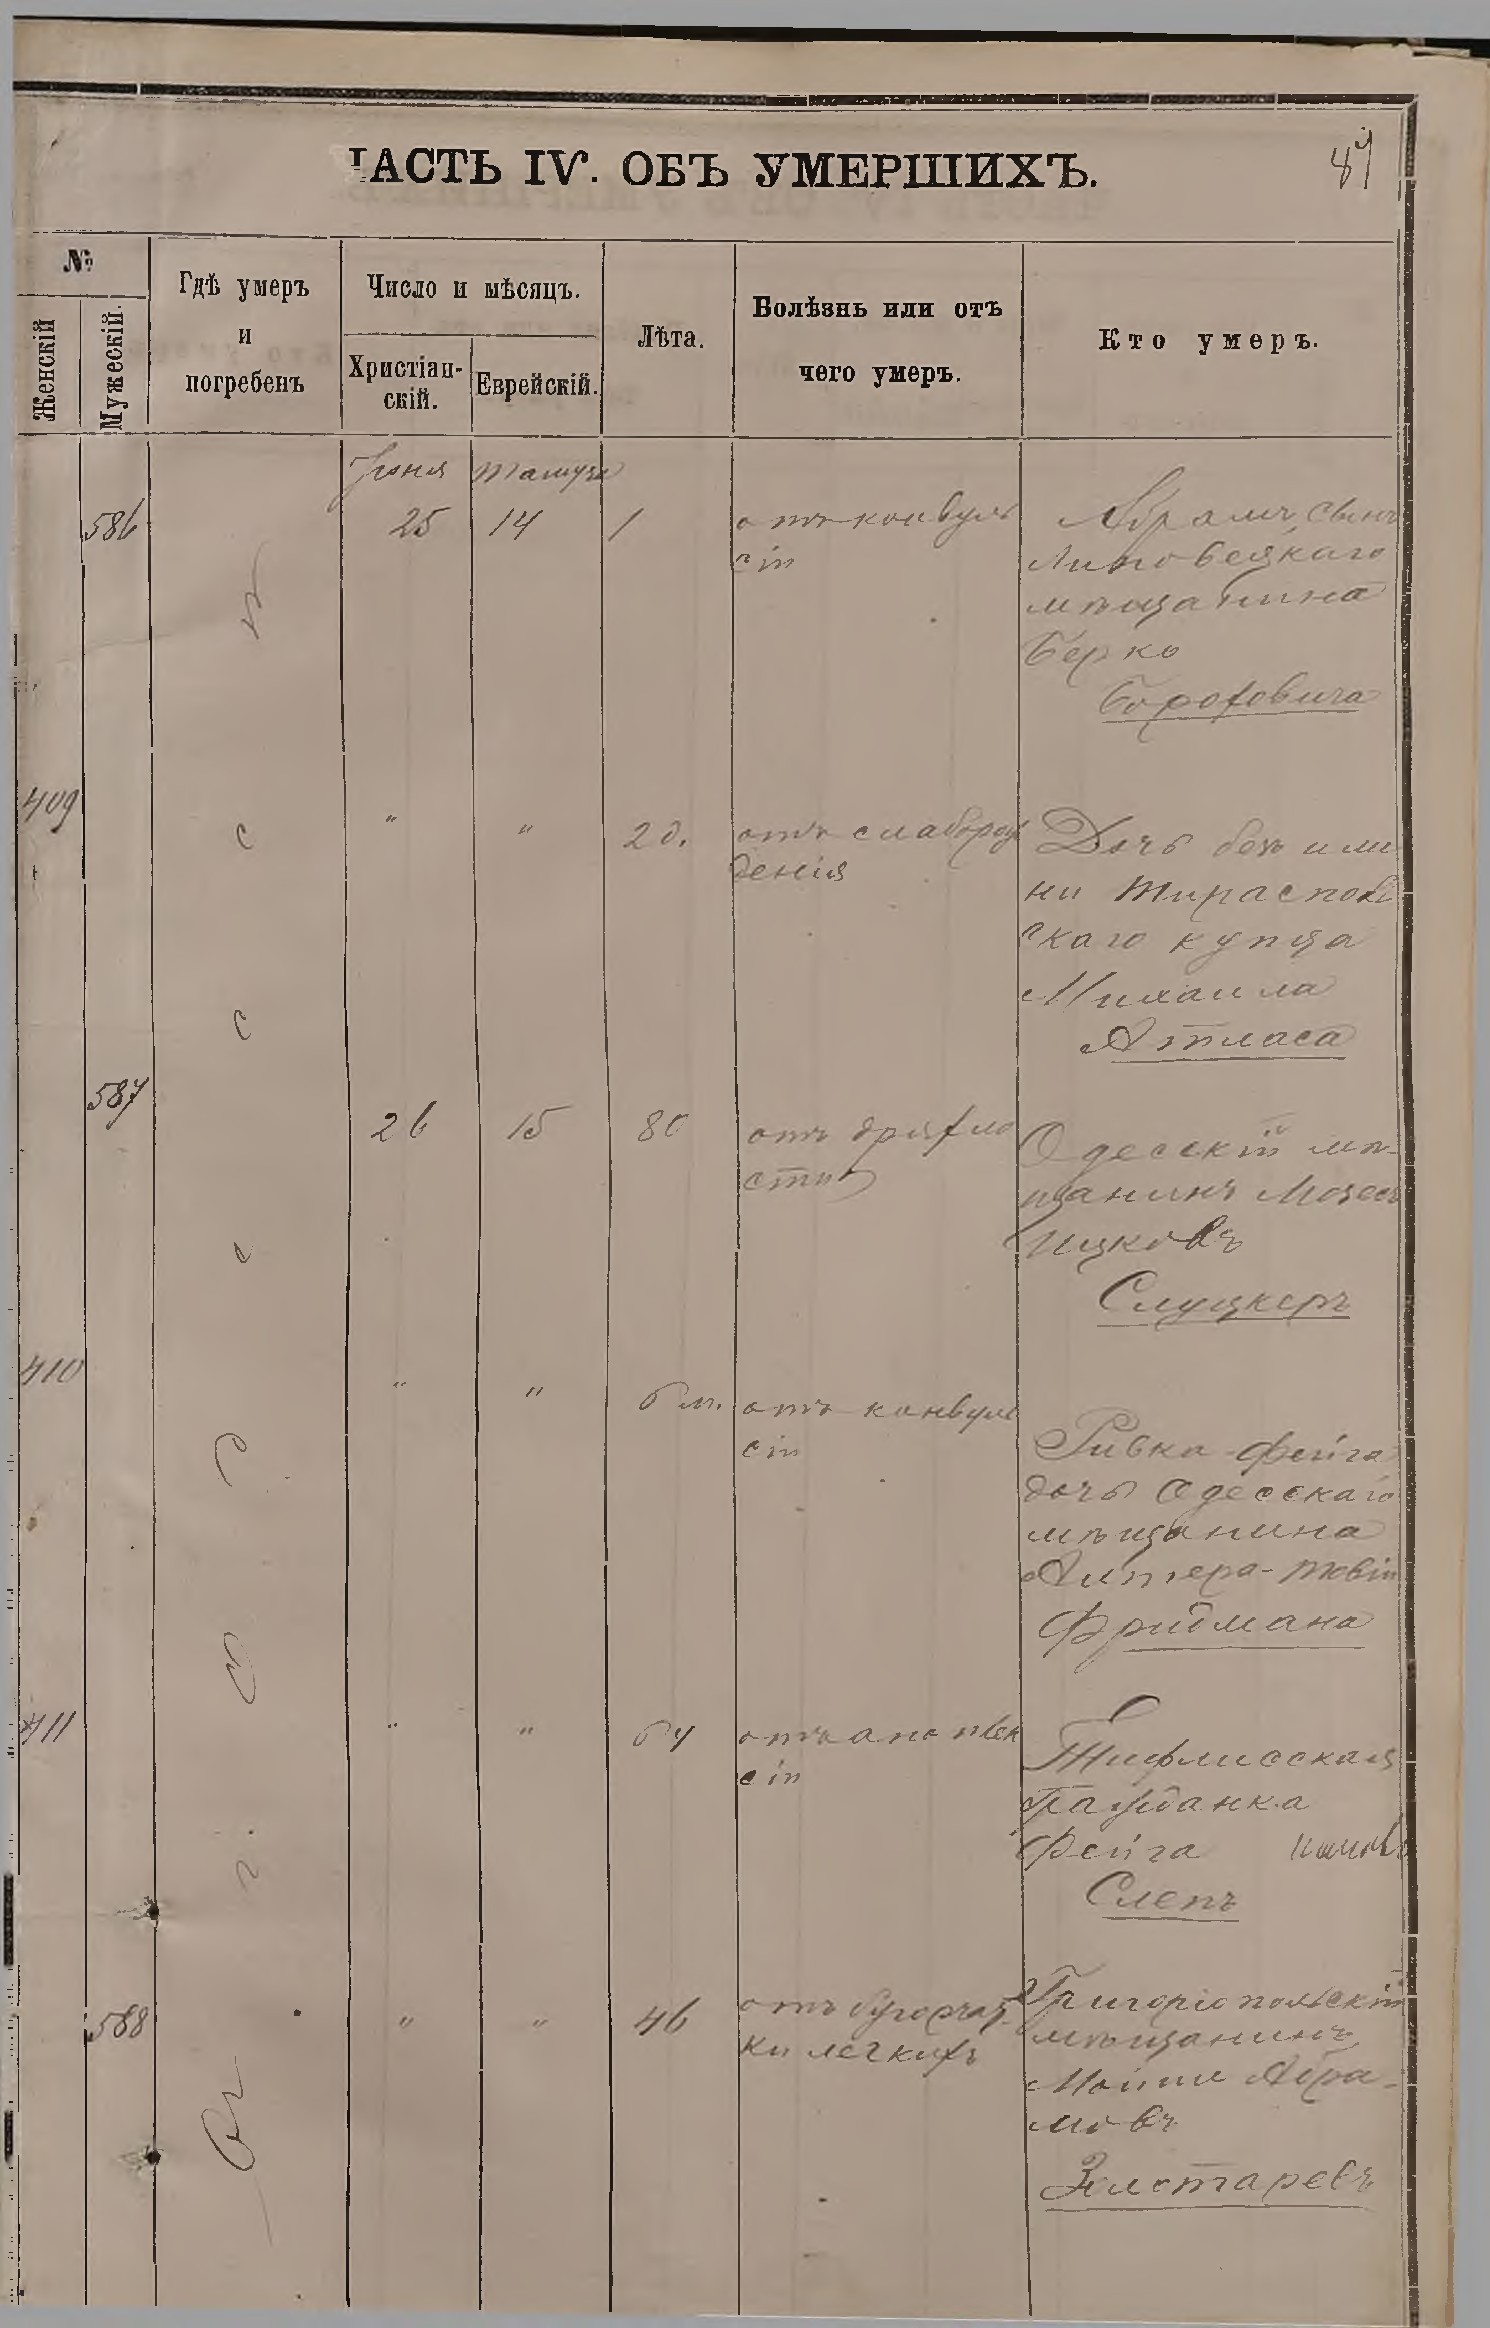 ЧАСТЬ IV. ОБЪ УМЕРШИХЪ.
87
№
Женскій
Мужескій.
Гдѣ умеръ
и
погребенъ
Число и мѣсяцъ.
Христіан-
скій.
Еврейскій.
Лѣта.
Болѣзнь или отъ
чего умеръ.
Кто умеръ.
Въ г. Одессѣ
Іюня
Тамуза
586
25
14
1
отъ конвуль
сіи
Абрамъ, сынъ
Липовецкаго
мѣщанина
Берко
Бороховича
409
"
"
2 д.
отъ слаборож
денія
Дочь безъ име
ни Тираспол
скаго купца
Михаила
Атласа
587
26
15
80
отъ дряхло
сти
Одесскій мѣ-
щанинъ Мозесъ
Ицковъ
Слуцкеръ
410
"
"
6 м.
отъ конвуль
сіи
Ривка-Фейга
дочь Одесскаго
мѣщанина
Алтера-Товіи
Фридмана
411
"
"
64
отъ апоплек
сіи
Тифлисская
Гражданка
Фейга
Слепъ
588
"
"
46
отъ бугорчат-
ки легкихъ
Григоріопольскій
мѣщанинъ
Мойше Абра-
мовъ
Золотаревъ